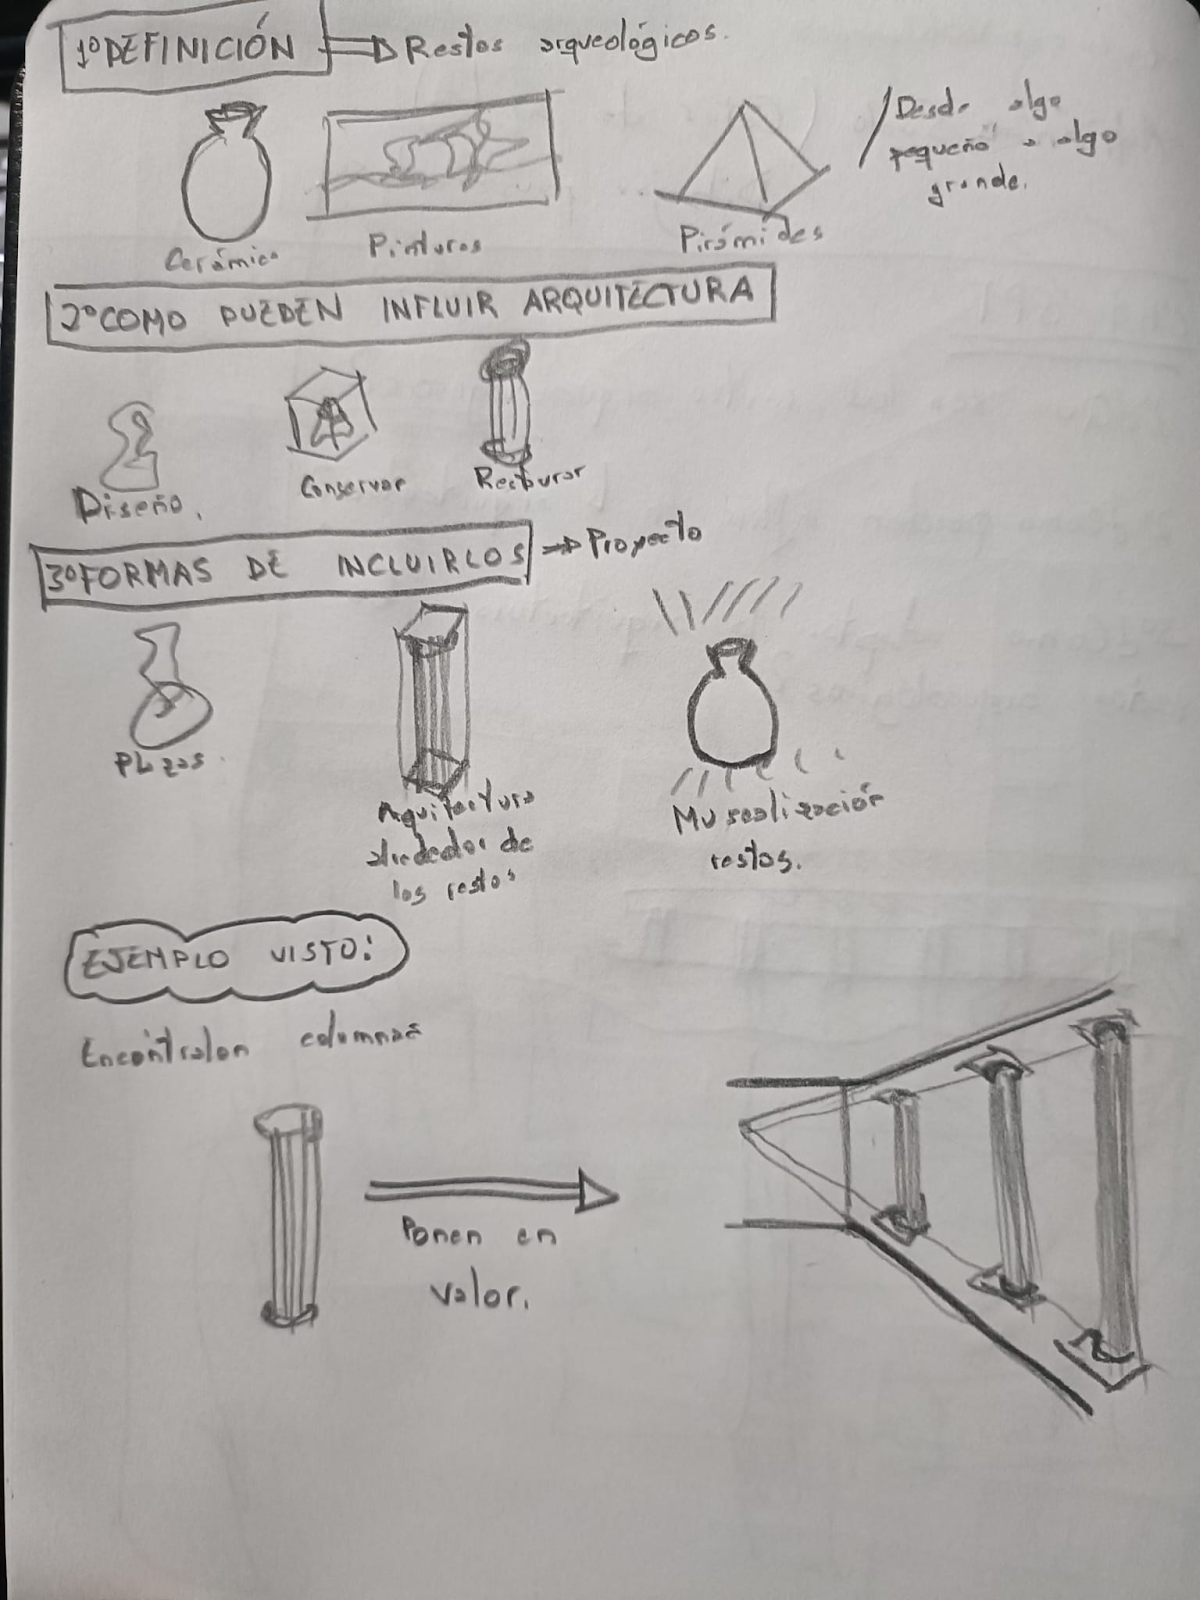 1º DEFINICIÓN ⇒ Restos arqueológicos.
Desde algo
pequeño a algo
grande.
Cerámica Pinturas Pirámides
2º COMO PUEDEN INFLUIR ARQUITECTURA
Diseño. Conservar Restaurar
3º FORMAS DE INCLUIRLOS ⇒ Proyecto
Plazas.
Arquitectura
alrededor de
los restos
Musealización
restos.
EJEMPLO VISTO:
Encontraron columnas
Ponen en
valor.